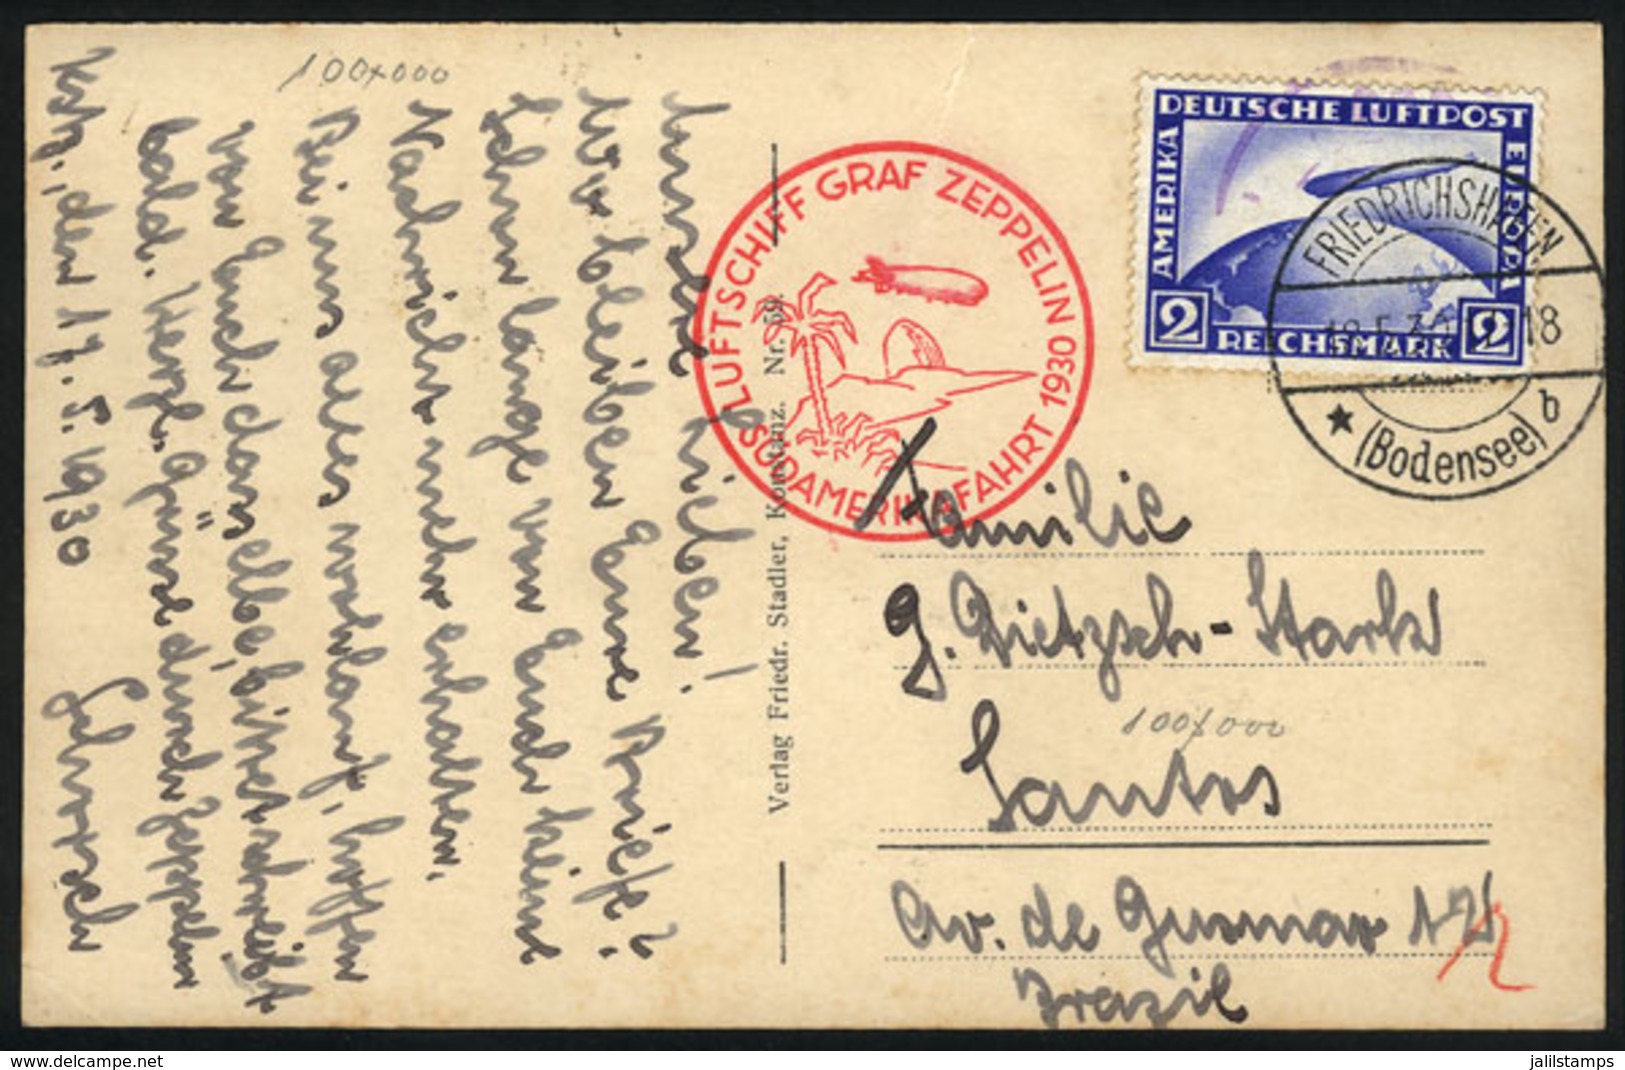 100x000
Kstz., den 17. 5. 1930
Unsre Lieben!
Wo bleiben Eure Briefe?
Schon lange von Euch keine
Nachricht mehr erhalten.
Bei uns alles wohlauf, hoffen
von Euch dasselbe, bitte schreibt
bald. Herzl. Grüsse durch Zeppelin
LUFTSCHIFF GRAF ZEPPELIN 1930
SÜDAMERIKAFAHRT
Verlag Friedr. Stadler, Konstanz. Nr. 59.
DEUTSCHE LUFTPOST
AMERIKA
EUROPA
2 REICHSMARK 2
FRIEDRICHSHAFEN
18.5.30. 18
(Bodensee) b
Familie
G. Dietzsch-Stark
100x000
Santos
Av. de Gusmao
Brazil
www.delcampe.net
jalilstamps